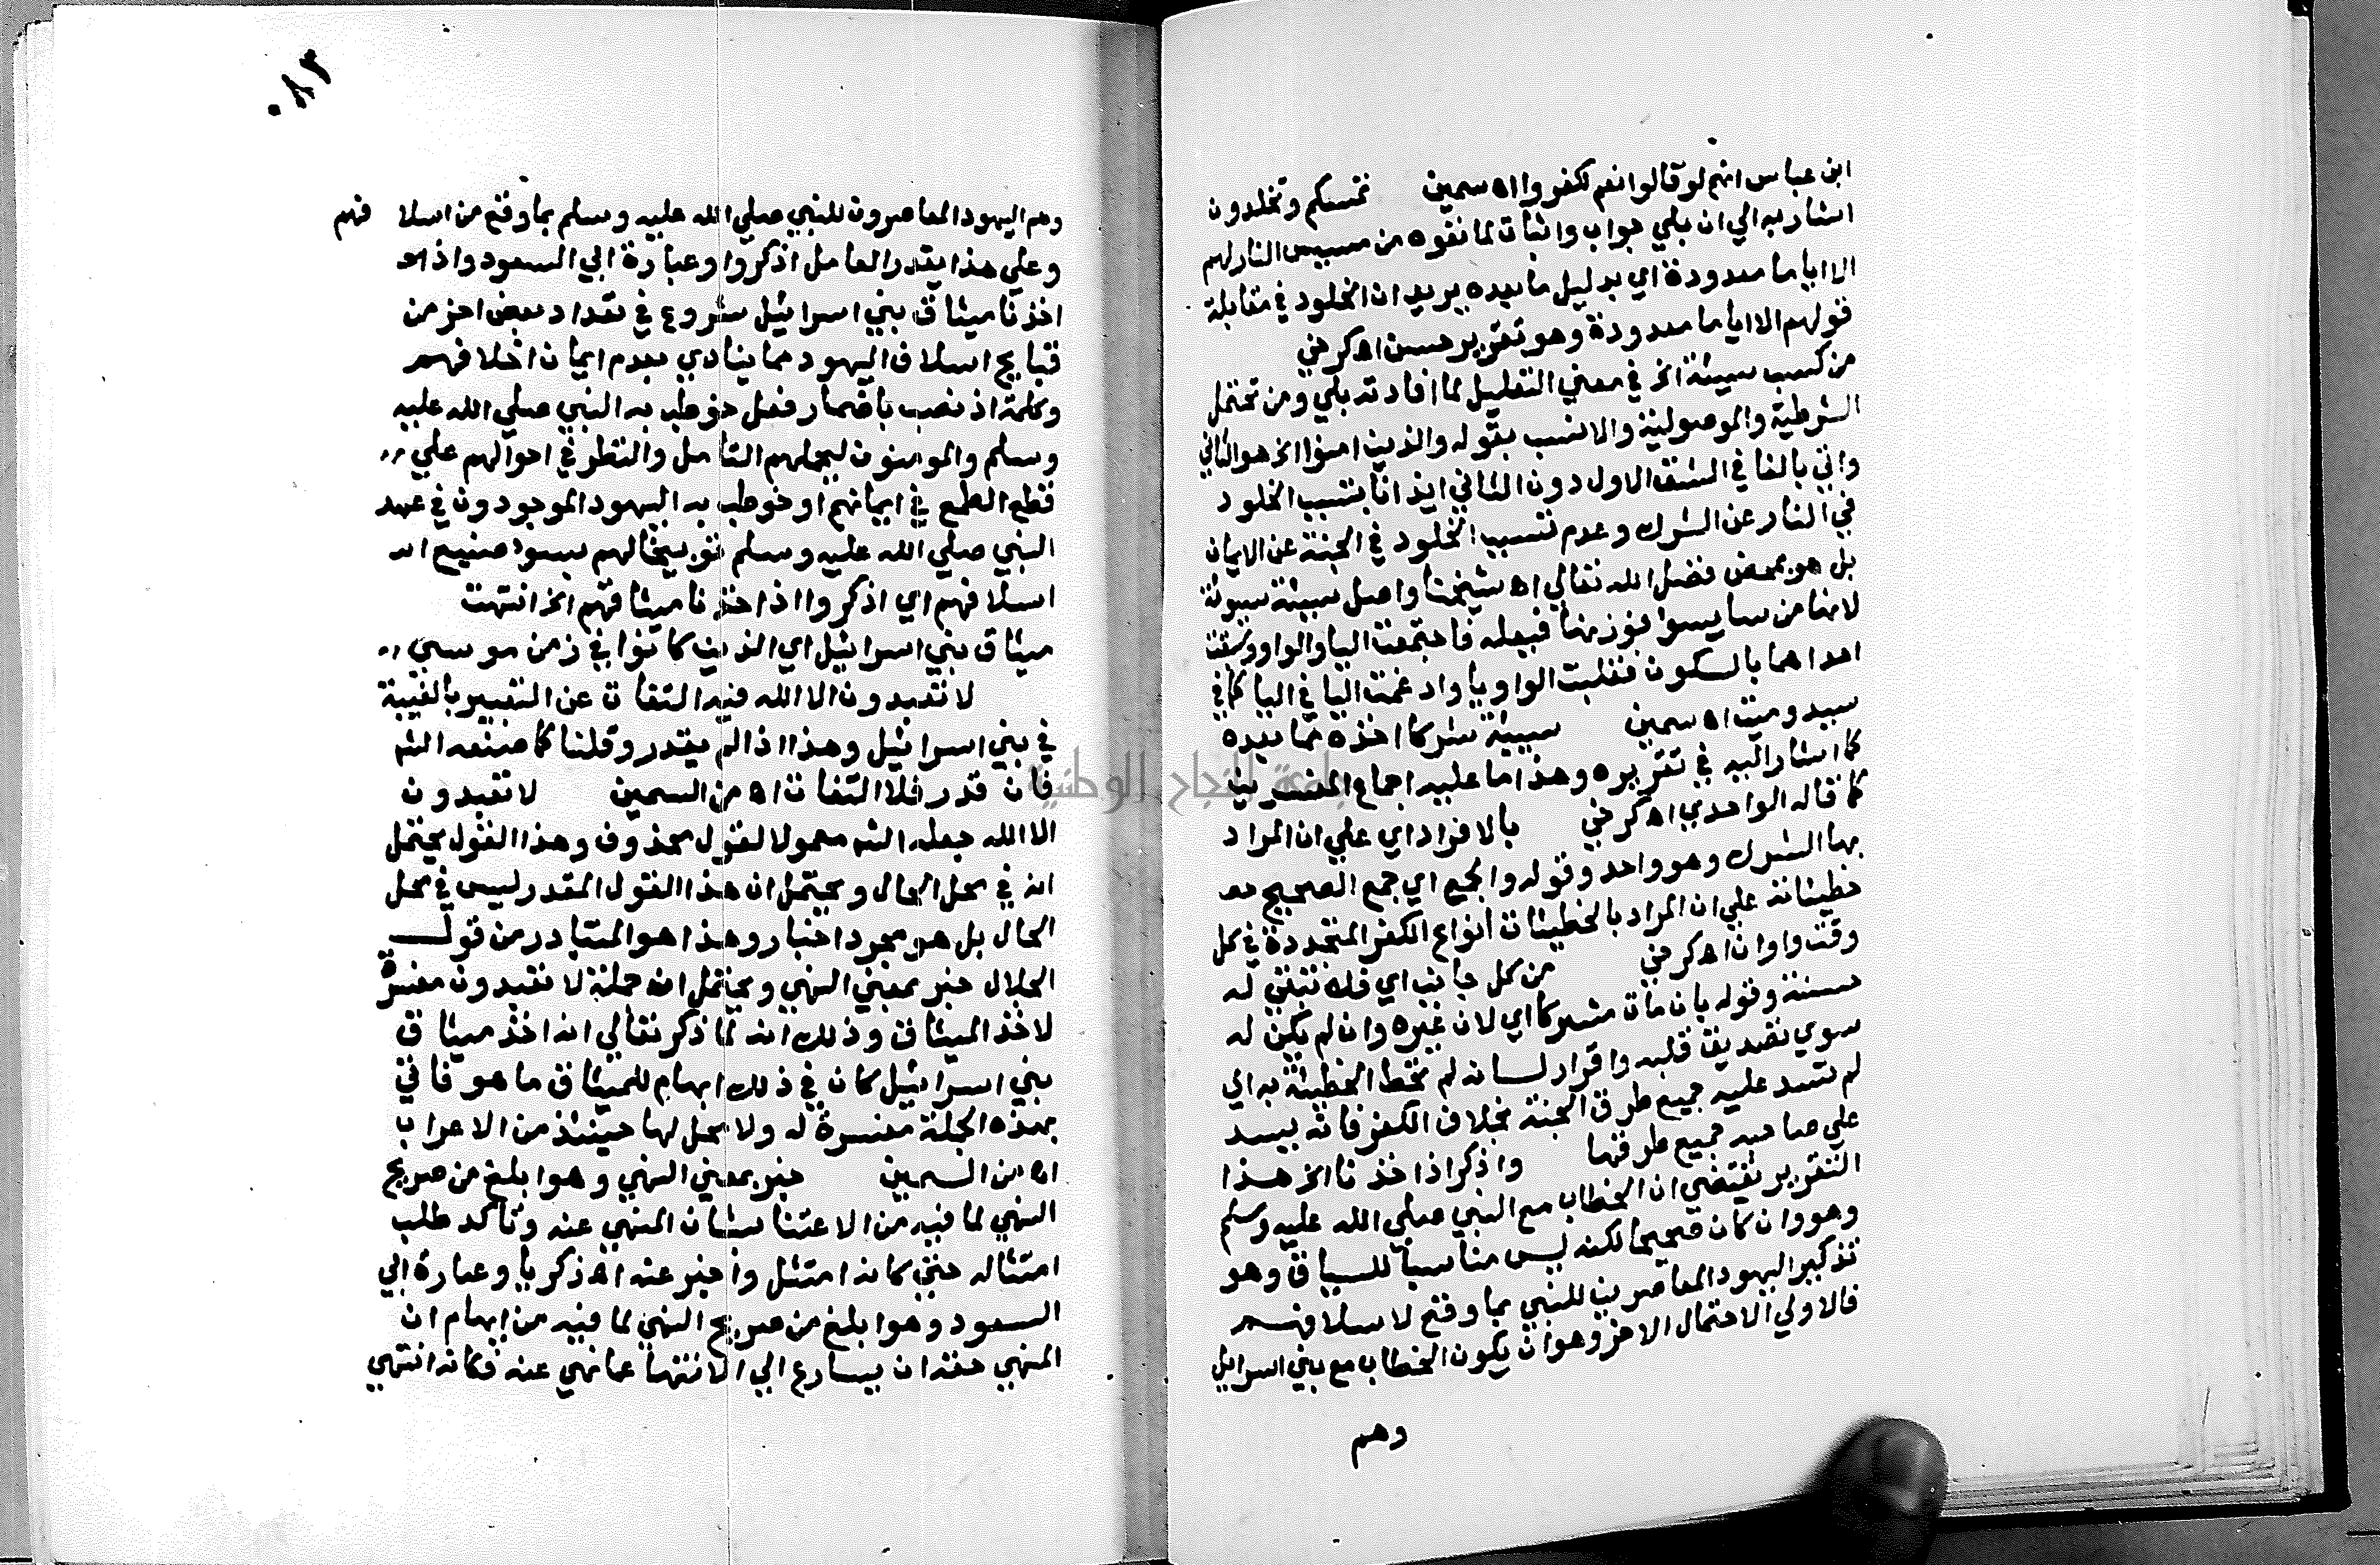 ابن عباس انهم لو قالوا نعم لكفروا اه سمين تمسكم وتخلدون
اشار به الي ان بلي جواب واثبات لما نفوه من مسيس النار لهم
الا اياما معدودة اي بدليل ما بعده يريد ان الخلود في مقابلة
قولهم الا اياما معدودة وهو تقرير حسن اه كرخي
من كسب سيئة الخ في معني التعليل لما افادته بلي ومن تحتمل
الشرطية والموصولية والانسب بقوله والذين امنوا الخ هو الثاني
واتي بالفا في الشق الاول دون الثاني ايذانا بتسبب الخلود
في النار عن الشرك وعدم تسبب الخلود في الجنة عن الايمان
بل هو بمحض فضل الله تعالي اه شيخنا واصل سيئة سيوئة
لانها من سا يسوا فوزنها فيعله فاجتمعت اليا والواو وسبقت
احداهما بالسكون فقلبت الواو يا وادغمت اليا في اليا كما في
سيد وميت اه سمين سيئة شركا اخذه مما بعده
كما اشار اليه في تقريره وهذا ما عليه اجماع المفسرين
كما قاله الواحدي اه كرخي بالافراد اي علي ان المراد
بها الشرك وهو واحد وقوله والجمع اي جمع الصحيح
خطيئاته علي ان المراد بالخطيئات انواع الكفر المتجددة في كل
وقت واوان اه كرخي من كل جانب اي فلم تبقي له
حسنة وقوله بان مات مشركا اي لان غيره وان لم يكن له
سوي تصديق قلبه واقرار لسانه لم تحط الخطيئة به اي
لم تسد عليه جميع طرق الجنة بخلاف الكفر فانه يسد
علي صاحبه جميع طرقها واذكر اذ اخذنا الخ هذا
التقرير تقتضي ان الخطاب مع النبي صلي الله عليه وسلم
وهو وان كان صحيحا لكنه ليس مناسبا للسياق وهو
تذكير اليهود المعاصرين للنبي بما وقع لاسلافهم
فالاولي الاحتمال الاخر وهو ان يكون الخطاب مع بني اسرايل
وهم
٠٨٣
وهم اليهود المعاصرون للنبي صلي الله عليه وسلم بما وقع من اسلا فهم
وعلي هذا يقدر العامل اذكروا وعبارة ابي السعود واذ
اخذنا ميثاق بني اسرائيل شروع في تعداد بعض اخر من
قبايح اسلاف اليهود مما ينادي بعدم ايمان اخلافهم
وكلمة اذ نصب باضمار فعل خوطب به النبي صلي الله عليه
وسلم والمومنون ليحملهم التامل والنظر في احوالهم علي
قطع الطمع في ايمانهم او خوطب به اليهود الموجودون في عهد
النبي صلي الله عليه وسلم توبيخا لهم بسوء صنيع اسـ
اسلافهم اي اذكروا اذ اخذنا ميثاقهم الخ انتهت
ميثاق بني اسرائيل اي الذين كانوا في زمن موسي
لا تعبدون الا الله فيه التفات عن التعبير بالغيبة
في بني اسرائيل وهذا اذا لم يقدر وقلنا كما صنعه الشم
فان قدر فلا التفات اه من السمين لا تعبدون
الا الله جعله الشم معمولا لقول محذوف وهذا القول يحتمل
انه في محل الحال ويحتمل ان هذا القول المقدر ليس في محل
الحال بل هو مجرد اخبار وهذا هو المتبادر من قول
الجلال خبر بمعني النهي ويحتمل ان جملة لا تعبدون مفسرة
لاخذ الميثاق وذلك انه لما ذكر تعالي انه اخذ ميثاق
بني اسرائيل كان في ذلك ابهام للميثاق ما هو فاتي
بهذه الجملة مفسرة له ولا محل لها حينئذ من الاعراب
اه من السمين خبر بمعني النهي وهو ابلغ من صريح
النهي لما فيه من الاعتنا بشان المنهي عنه وتاكد طلب
امتثاله حتي كانه امتثل واخبر عنه اه زكريا وعبارة ابي
السعود وهو ابلغ من صريح النهي لما فيه من ايهام ان
المنهي حقه ان يسارع الي الانتها عما نهي عنه فكانه انتهي
جامعة النجاح الوطنية